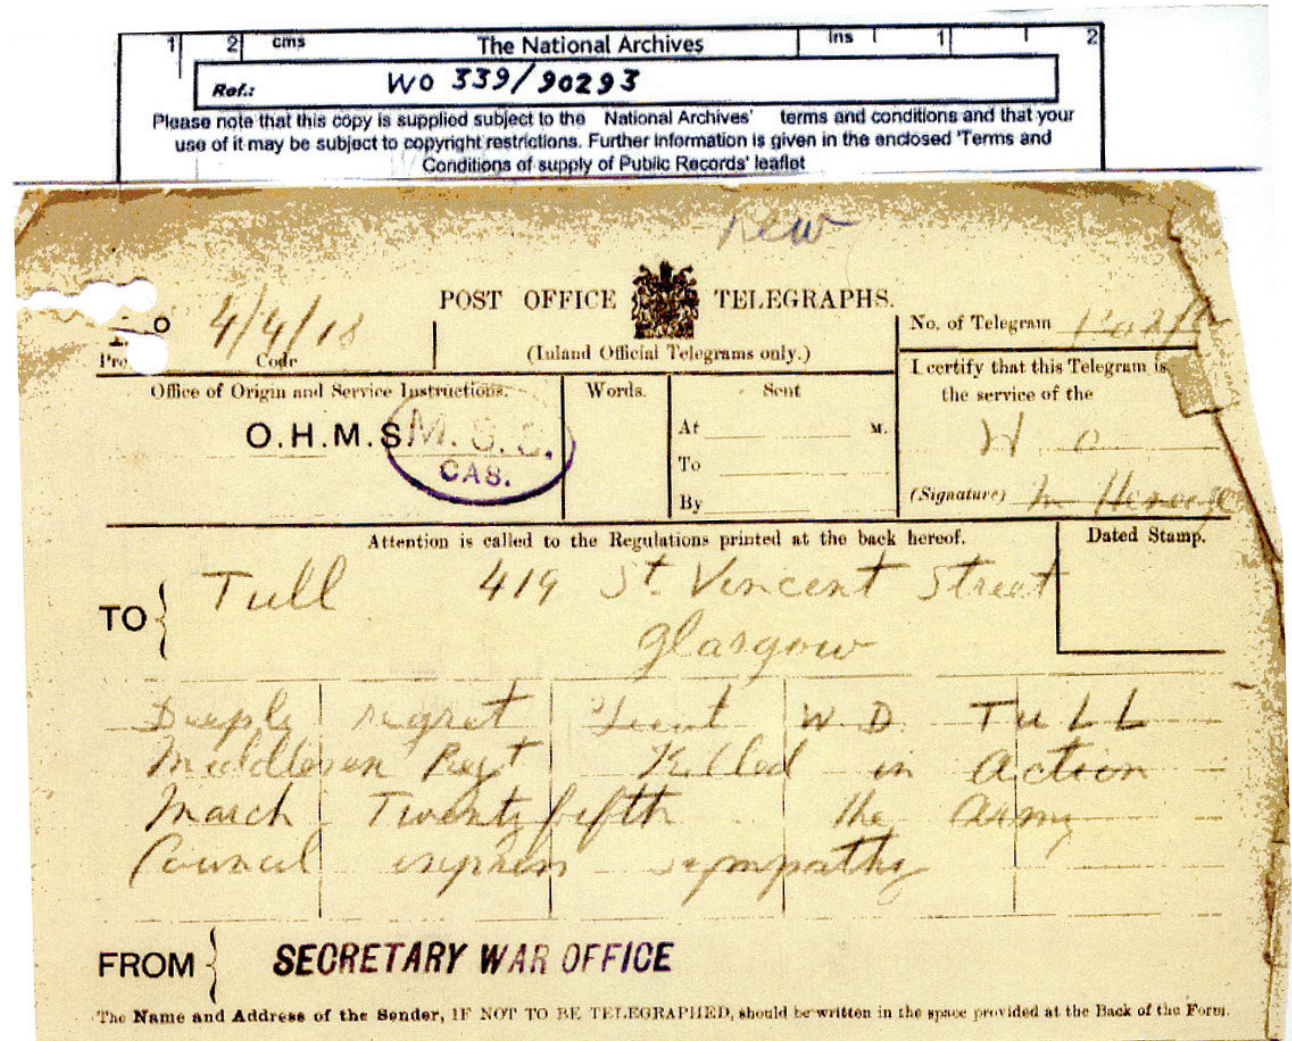 1 2 cms The National Archives ins 1 2
Ref.: WO 339/90293
Please note that this copy is supplied subject to the National Archives' terms and conditions and that your
use of it may be subject to copyright restrictions. Further information is given in the enclosed 'Terms and
Conditions of supply of Public Records' leaflet
new
POST OFFICE TELEGRAPHS.
(Inland Official Telegrams only.)
4/4/18
Code
No. of Telegram
Office of Origin and Service Instructions.
O.H.M.S
M.S.3.
CAS.
Words.
Sent
At M.
To
By
I certify that this Telegram is
the service of the
W O
(Signature)
Attention is called to the Regulations printed at the back hereof.
Dated Stamp.
TO Tull 419 St. Vincent Street
Glasgow
Deeply regret Lieut W. D. TULL
Middlesex Regt Killed in Action
March Twenty fifth the Army
Council express sympathy
FROM SECRETARY WAR OFFICE
The Name and Address of the Sender, IF NOT TO BE TELEGRAPHED, should be written in the space provided at the Back of the Form.